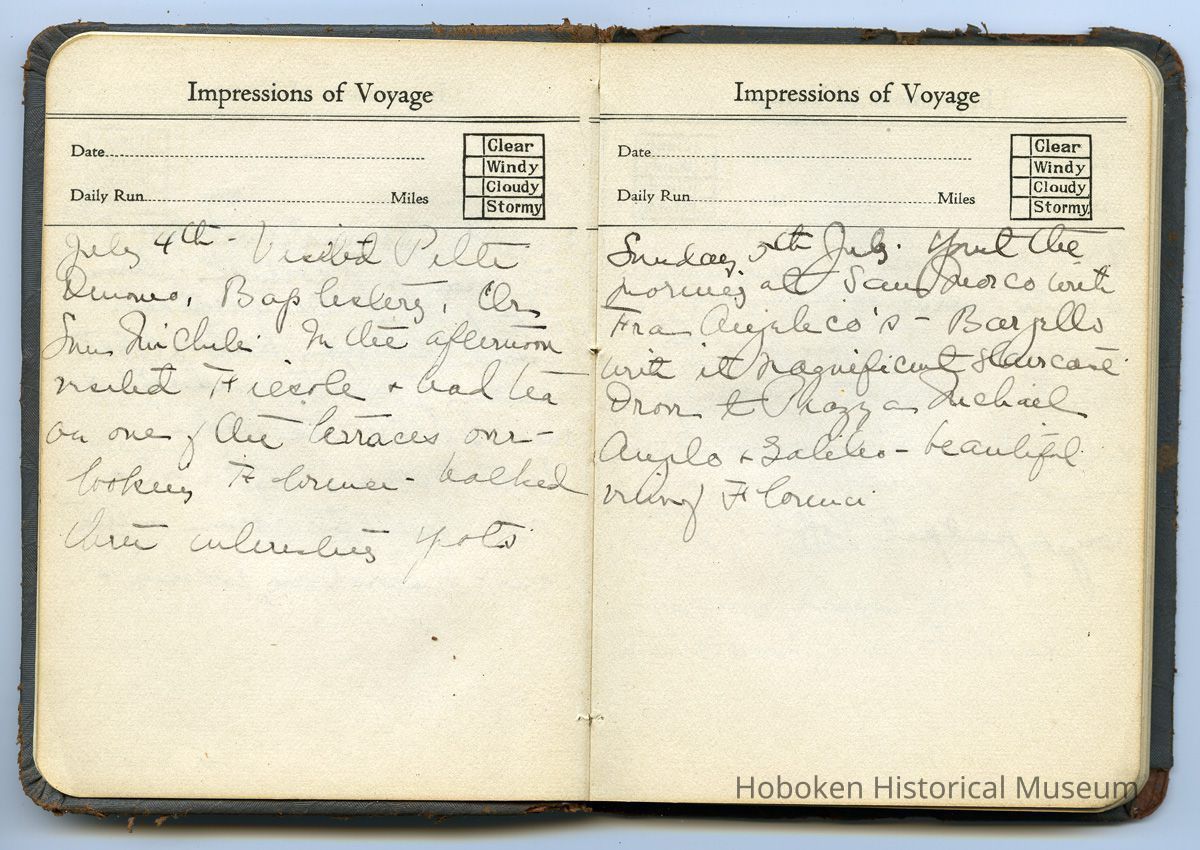 Impressions of Voyage
Date
Daily Run Miles
Clear
Windy
Cloudy
Stormy
July 4th - Visited Pitti
Duomo, Baptistery, Or
San Michele. In the afternoon
visited Fiesole + had tea
on one of the terraces over-
looking Florence - walked
three interesting spots
Impressions of Voyage
Date
Daily Run Miles
Clear
Windy
Cloudy
Stormy
Sunday 5th July. Spent the
morning at San Marco with
Fra Angelico's - Bargello
with it magnificent staircase
Drove to Piazza Michael
Angelo + Galileo - beautiful
view of Florence
Hoboken Historical Museum